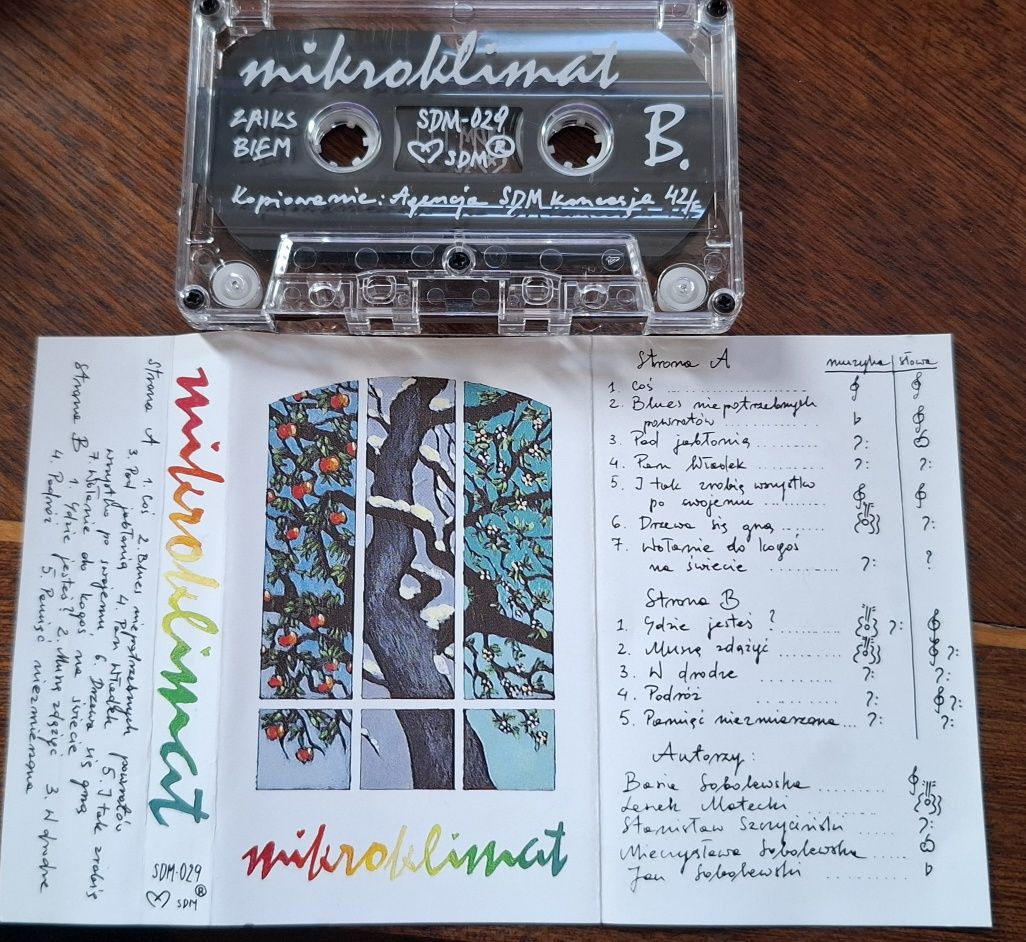 mikroklimat
ZAIKS
BIEM
SDM-029
SDM ®
B.
Kopiowanie: Agencja SDM koncesja 42/
Strona A 1. Coś 2. Blues niepotrzebnych powrotów
3. Pod jabłonią 4. Pan Władek 5. I tak zrobię
wszystko po swojemu 6. Drzewa się gną
7. Wołanie do kogoś na świecie
Strona B 1. Gdzie jesteś? 2. Muszę zdążyć 3. W drodze
4. Podróż 5. Pamięć niezmierzona
mikroklimat
SDM-029
SDM ®
mikroklimat
Strona A muzyka słowa
1. Coś
2. Blues niepotrzebnych
powrotów
3. Pod jabłonią
4. Pan Władek
5. I tak zrobię wszystko
po swojemu
6. Drzewa się gną
7. Wołanie do kogoś
na świecie
Strona B
1. Gdzie jesteś?
2. Muszę zdążyć
3. W drodze
4. Podróż
5. Pamięć niezmierzona
Autorzy:
Basia Sobolewska
Leszek Małecki
Stanisław Szczyciński
Mieczysława Sobolewska
Jan Sobolewski